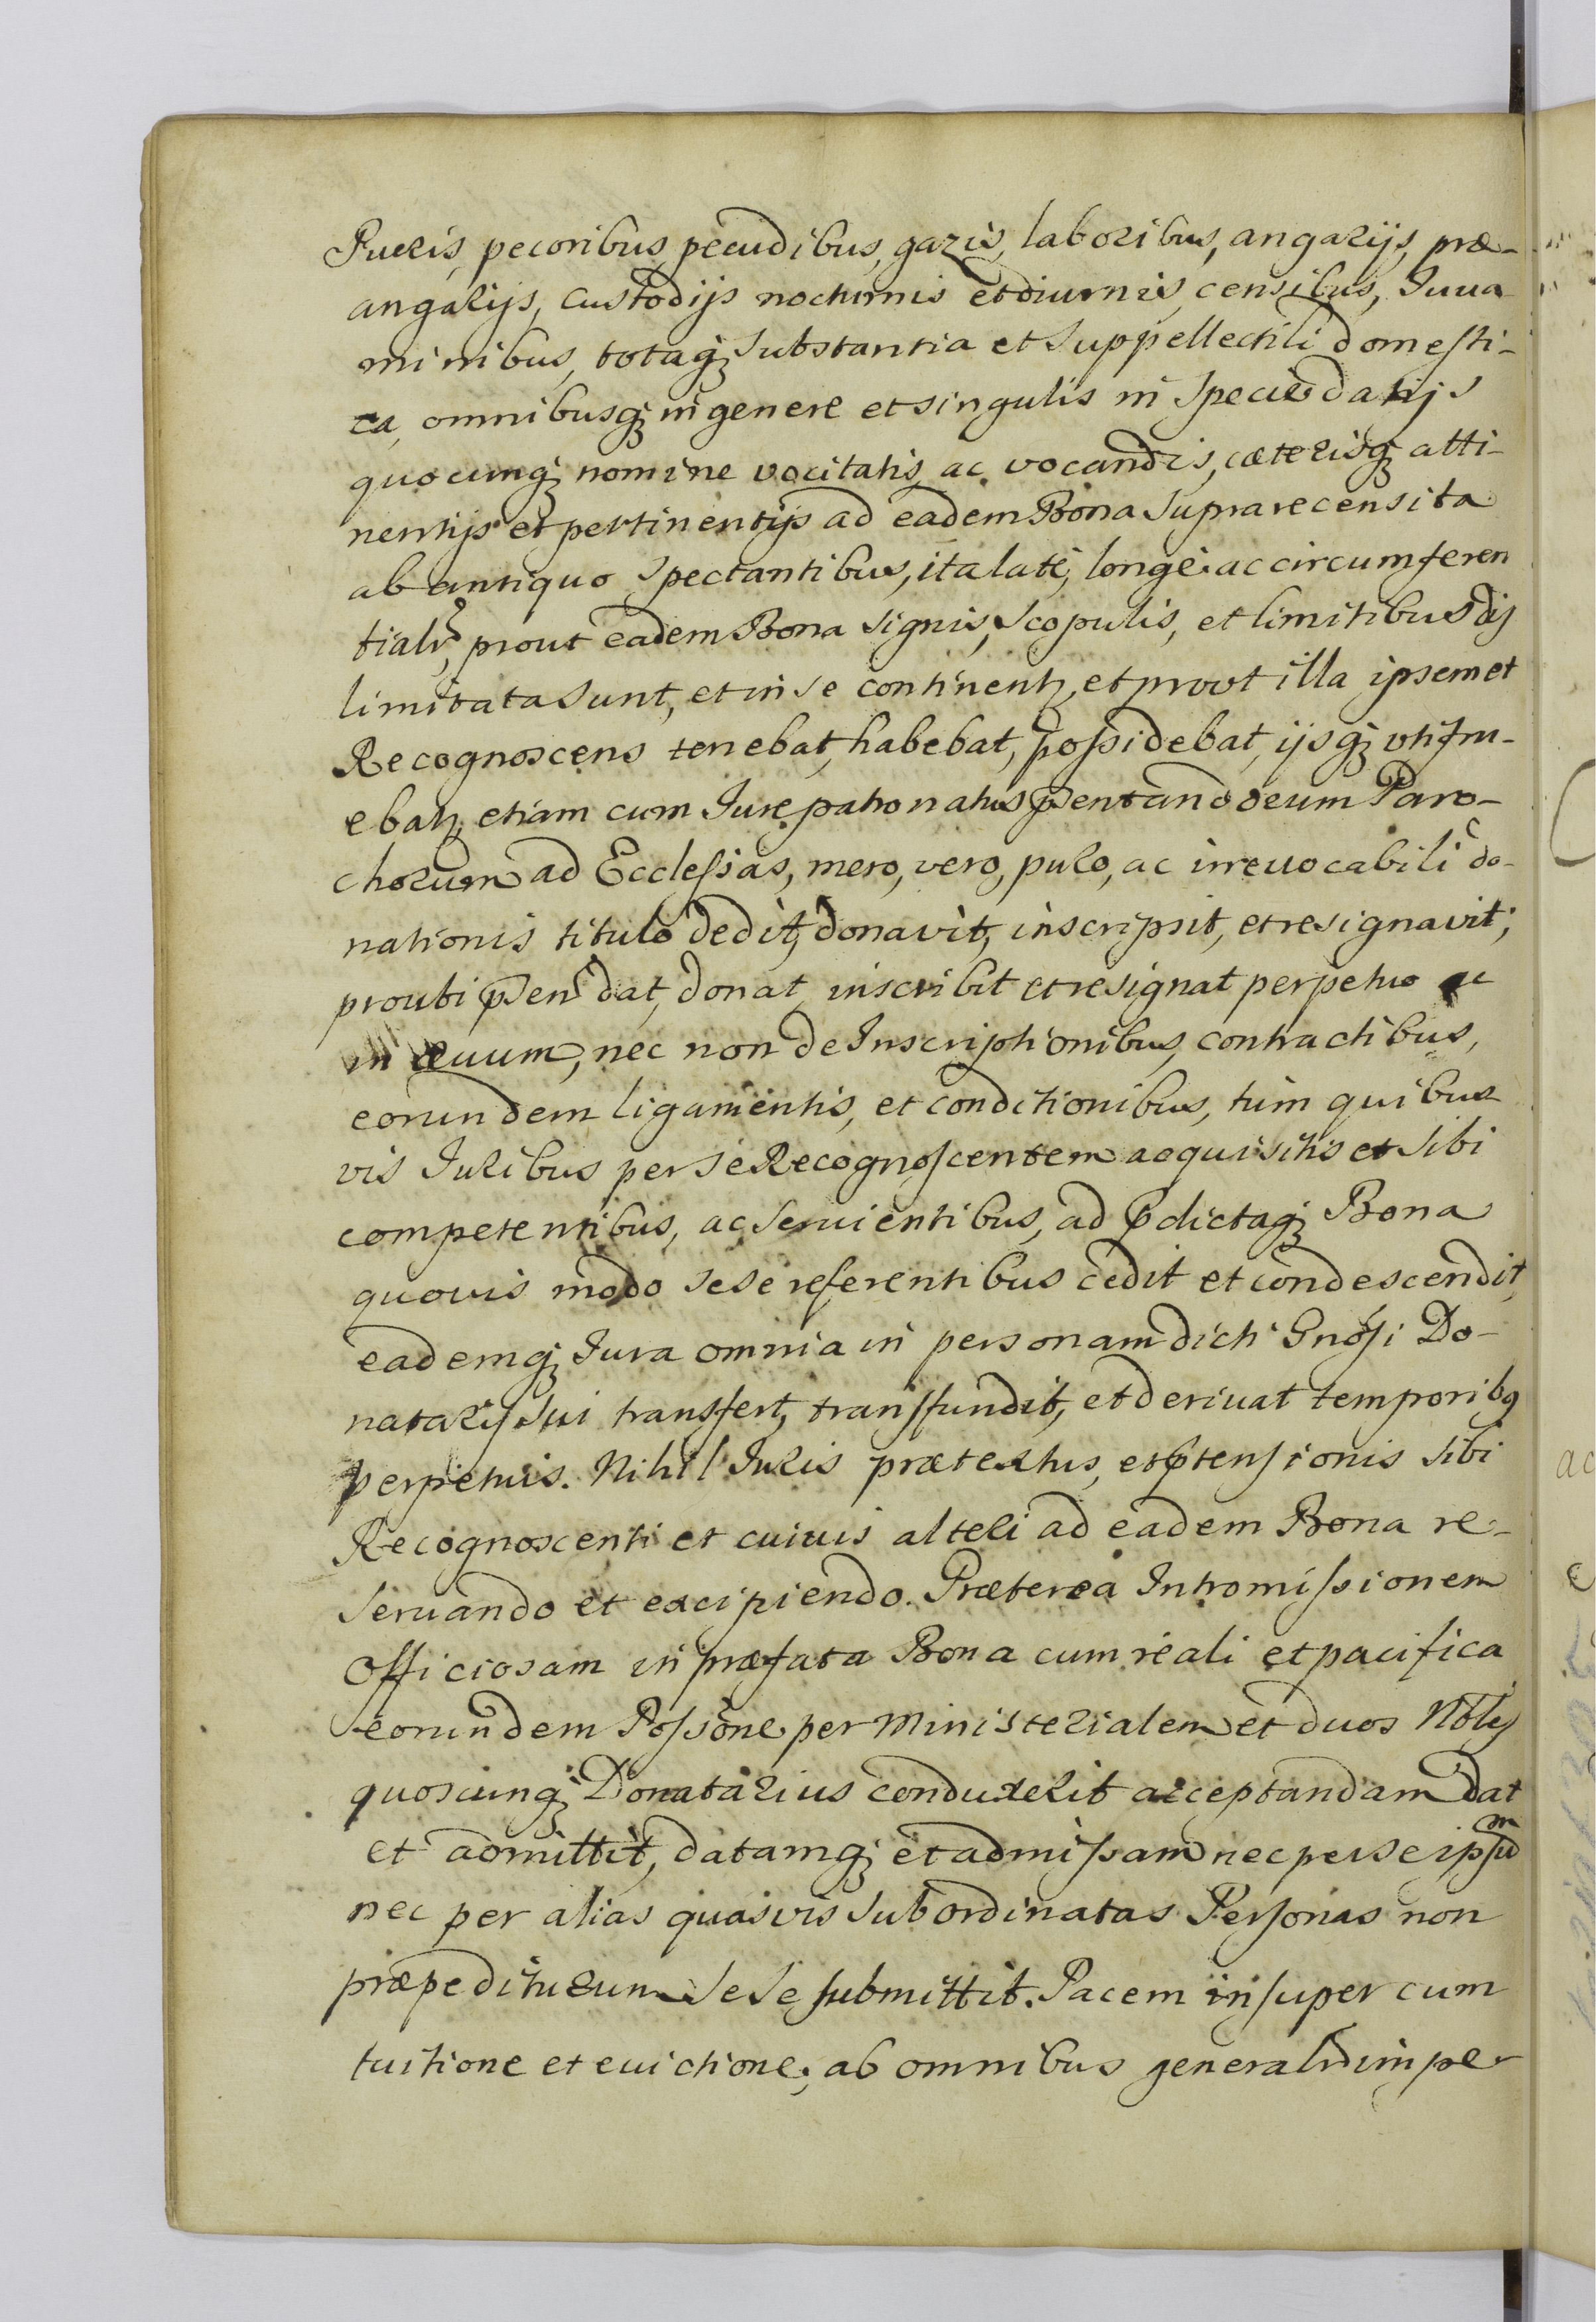 Pueris, pecoribus, pecudibus, gazis, laboribus, angarijs, præ-
angarijs, custodijs nocturnis et diurnis, censibus, Iuua
minibus, totaq₃ substantia et suppellectili domesti-
ca, omnibusq₃ in genere et singulis in specie datijs
quocunq₃ nomine vocitatis, ac vocandis, cæterisq₃ atti-
nentijs et pertinentijs ad eadem Bona supra recensita
ab antiquo spectantibus, ita latè, longè ac circumferen
tialr, prout eadem Bona signis, scopulis, et limitibus dis
limitata sunt, et in se continentz, et prout illa ipsemet
Recognoscens tenebat, habebat, possidebat, ijsq₃ vtifru-
ebatz, etiam cum Iure patronatus p̃sentandorum Paro-
chorum ad Ecclesias, mero, vero, puro, ac irreuocabili do-
nationis titulo dedit, donavit, inscripsit, et resignavit;
prouti p̃sen dat, donat, inscribit et resignat perpetuo ac
in æuum, nec non de Inscriptionibus, contractibus,
eorundem ligamentis, et conditionibus, tum quibus
vis Iuribus per se Recognoscentem acquisitis et sibi
competentibus, ac seruientibus, ad p̃dictaq₃ Bona
quovis modo sese referentibus cedit et condescendit,
eademq₃ Iura omnia in personam dicti Gnosi Do-
natarij sui transfert, transfundit, et deriuat temporibq
perpetuis. Nihil Iuris prætextus, et p̃tensionis sibi
Recognoscenti et cuiuis alteri ad eadem Bona re-
seruando et excipiendo. Præterea Intromissionem
Officiosam in præfata Bona cum reali et pacifica
eorundem Possõne per Ministerialem et duos Nobles
quoscunq₃ Donatarius conduxerit acceptandam dat
et admittit, datamq₃ et admissam nec per se ipsum
nec per alias quasvis subordinatas Personas non
præpediturum sese submittit. Pacem insuper cum
tuitione et euictione, ab omnibus generalr impe